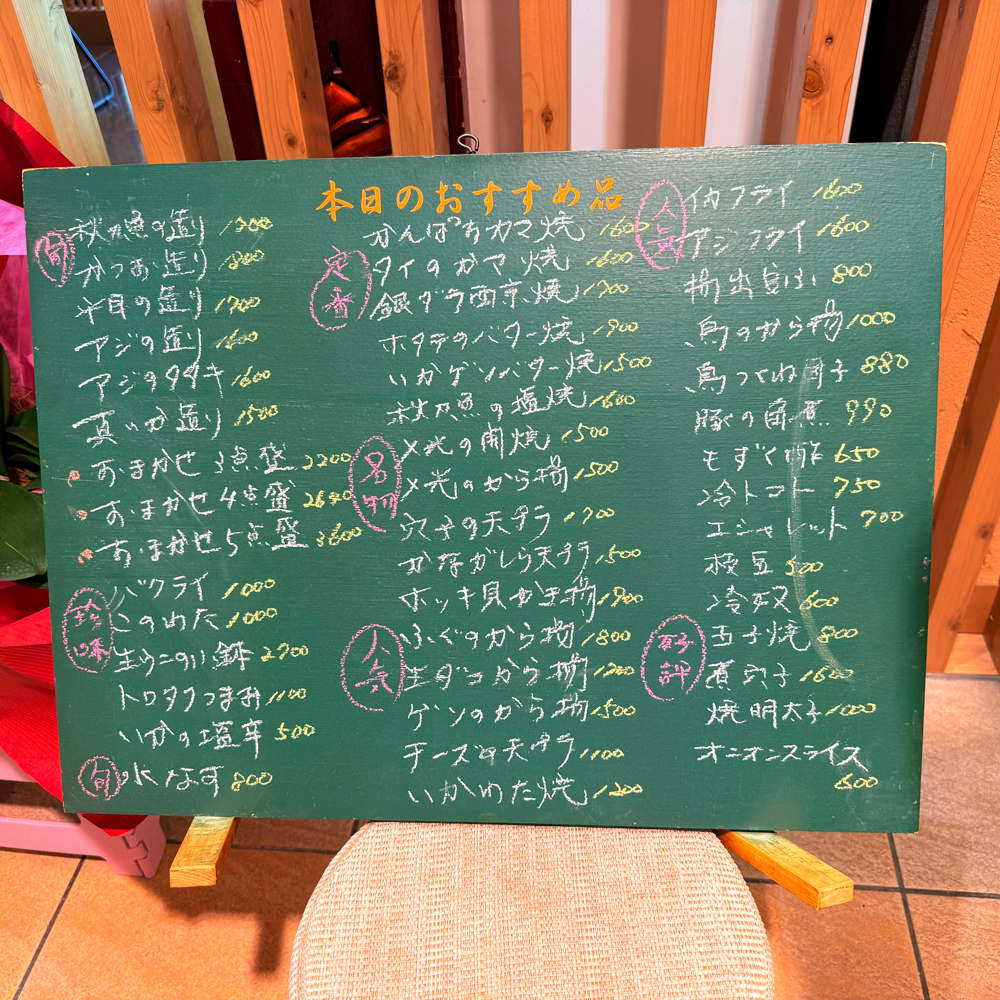 本日のおすすめ品
旬
秋刀魚の造り 1700
かつお造り 1800
平目の造り 1700
アジの造り 1600
アジのタタキ 1600
真いか造り 1500
おまかせ3点盛 2200
おまかせ4点盛 2600
おまかせ5点盛 3600
珍味
バクライ 1000
このわた 1000
生うにのい 2700
トロタクつまみ 1100
いかの塩辛 500
旬
水なす 800
定番
かんぱちカマ焼 1600
タイのカマ焼 1600
銀ダラ西京焼 1700
ホタテのバター焼 1900
いかゲソバター焼 1500
秋刀魚の塩焼 1600
名物
メ光の開焼 1500
メ光のから揚 1500
穴子の天プラ 1700
かながしら天プラ 1500
ホッキ貝かき揚 1900
人気
ふぐのから揚 1800
生ダコから揚 1200
ゲソのから揚 1500
チーズの天プラ 1100
いかわた焼 1200
人気
イカフライ 1600
アジフライ 1600
揚出豆ふ 800
鳥のから揚 1000
鳥つくね 880
豚の角煮 990
もずく酢 650
冷トマト 750
エシャレット 700
枝豆 500
冷奴 600
好評
玉子焼 800
煮穴子 1600
焼明太子 1000
オニオンスライス
600